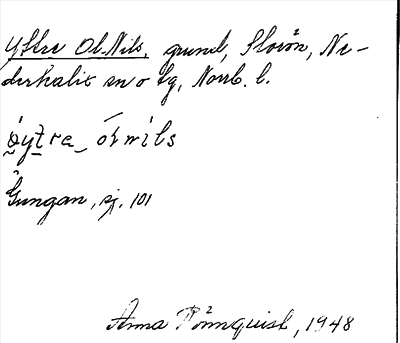 Yttre Ol-Nils, grund, Storön, Ne-
derkalix sn o tg, Norrb. l.
Gungan, sj. 101
Anna Rönnquist, 1948